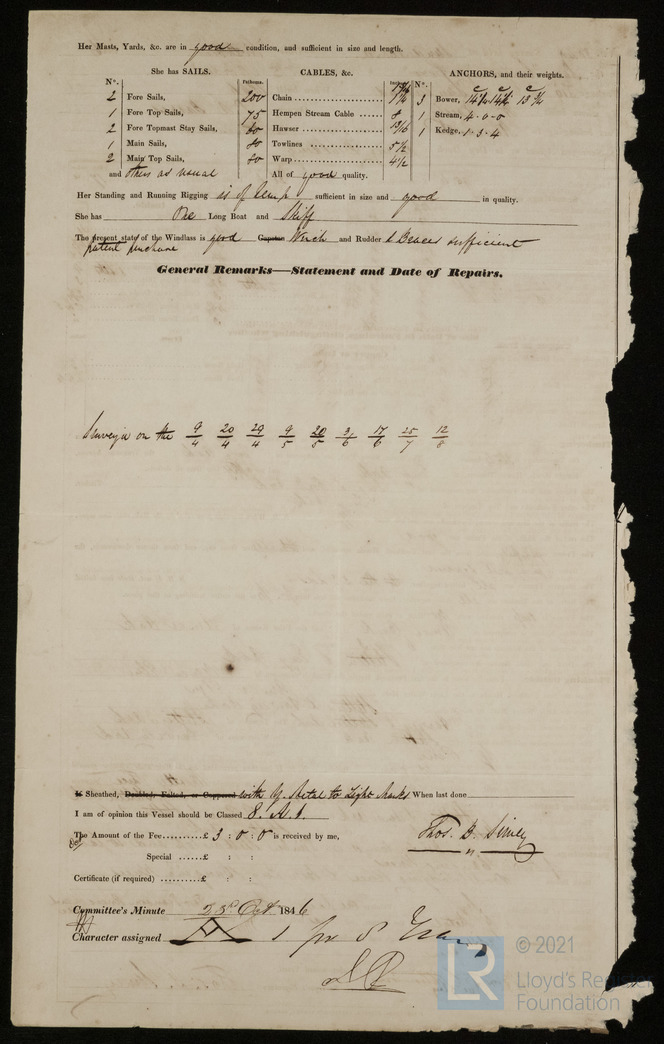 Her Masts, Yards, &c. are in good condition, and sufficient in size and length.
She has SAILS.
CABLES, &c.
ANCHORS, and their weights.
No.
Fathoms.
Inches.
No.
2 Fore Sails,
200 Chain
3 Bower,
1 Fore Top Sails,
75 Hempen Stream Cable 8
1 Stream, 4-0-0
2 Fore Topmast Stay Sails,
80 Hawser
1 Kedge, 1-3-4
1 Main Sails,
80 Towlines 5½
2 Main Top Sails,
80 Warp 4½
and others as usual
All of good quality.
Her Standing and Running Rigging is of hemp sufficient in size and good in quality.
She has One Long Boat and Skiff
The present state of the Windlass is good Capstan Winch and Rudder & Braces sufficient
patent purchase
General Remarks—Statement and Date of Repairs.
on the 9/4 20/4 29/4 9/5 20/5 3/6 17/6 25/7 12/8
Is Sheathed, Doubled, Felted, or Coppered with Y. Metal to Light Marks When last done
I am of opinion this Vessel should be Classed 8. A. 1.
The Amount of the Fee..........£ 3 : 0 : 0 is received by me,
Thos. B. Simey
Special ......£ : :
Certificate (if required) ..........£ : :
Committee's Minute 23rd Oct 1846
Character assigned A 1 for 8 Years
© 2021
LR
Lloyd's Register
Foundation